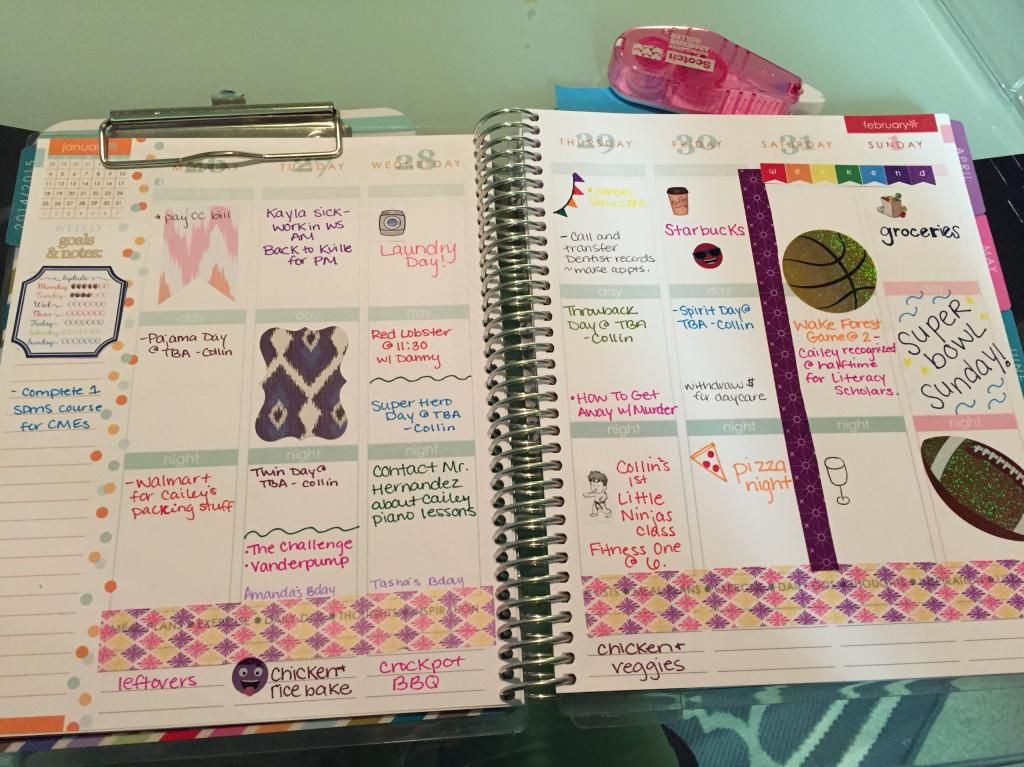 january*
WEEKLY
goals
& notes:
hydrate
Monday
Tuesday
Wed
Thurs
Friday
Saturday
Sunday
- Complete 1
SDMS course
for CMEs
2014/2015
TUESDAY
28
WEDNESDAY
* pay CC bill
Kayla sick-
work in WS
AM
Back to Kville
for PM
Laundry
Day!
day
day
- Pajama Day
@ TBA - Collin
Red Lobster
@ 11:30
w/ Danny
Super Hero
Day @ TBA
- Collin
night
night
night
- Walmart
for Cailey's
packing stuff
Twin Day @
TBA - Collin
• The Challenge
• Vanderpump
Amanda's Bday
Contact Mr.
Hernandez
about Cailey
piano lessons
Tasha's Bday
leftovers
Chicken +
rice bake
Crockpot
BBQ
Scotch
february*
29
THURSDAY
30
FRIDAY
31
SATURDAY
1
SUNDAY
weekend
* cancel
Sirius XM
- Call and
transfer
Dentist records
~ make appts.
Starbucks
groceries
day
day
day
Throwback
Day @ TBA
- Collin
• How To Get
Away w/ Murder
- Spirit Day @
TBA - Collin
withdraw $
for daycare
Wake Forest
Game @ 2 -
Cailey recognized
@ halftime
for Literacy
Scholars.
Super
bowl
Sunday!
night
night
night
night
Collin's
1st
Little
Ninjas
class
Fitness One
@ 6.
pizza
night
chicken +
veggies
APRIL
MAY